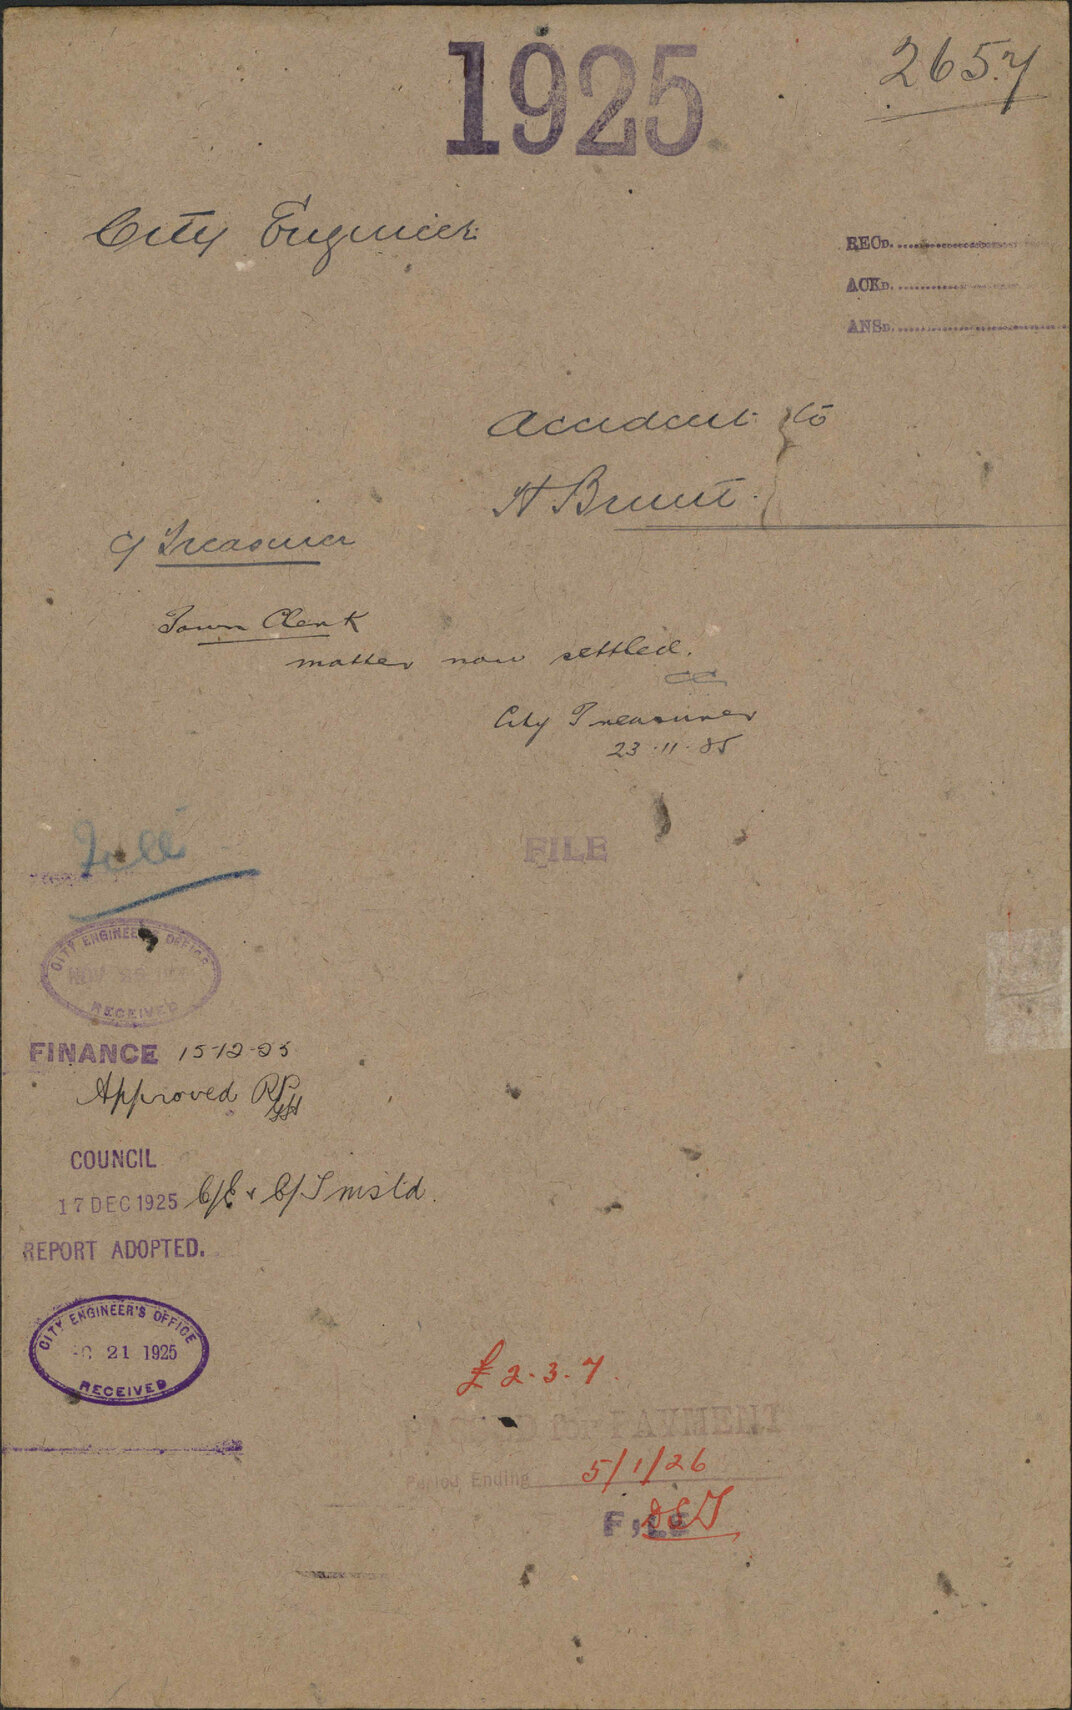 1925
2657
City Engineer
RECD.
ACKD.
ANSD.
Accident to
H Brunt.
C/ Treasurer
Town Clerk
matter now settled.
City Treasurer
23.11.25
FILE
CITY ENGINEER'S OFFICE
NOV
RECEIVED
FINANCE 15-12-25
Approved
COUNCIL
17 DEC 1925 C/E & C/T instd.
REPORT ADOPTED.
CITY ENGINEER'S OFFICE
21 1925
RECEIVED
£2.3.7.
PASSED for PAYMENT
Period Ending 5/1/26
FILE